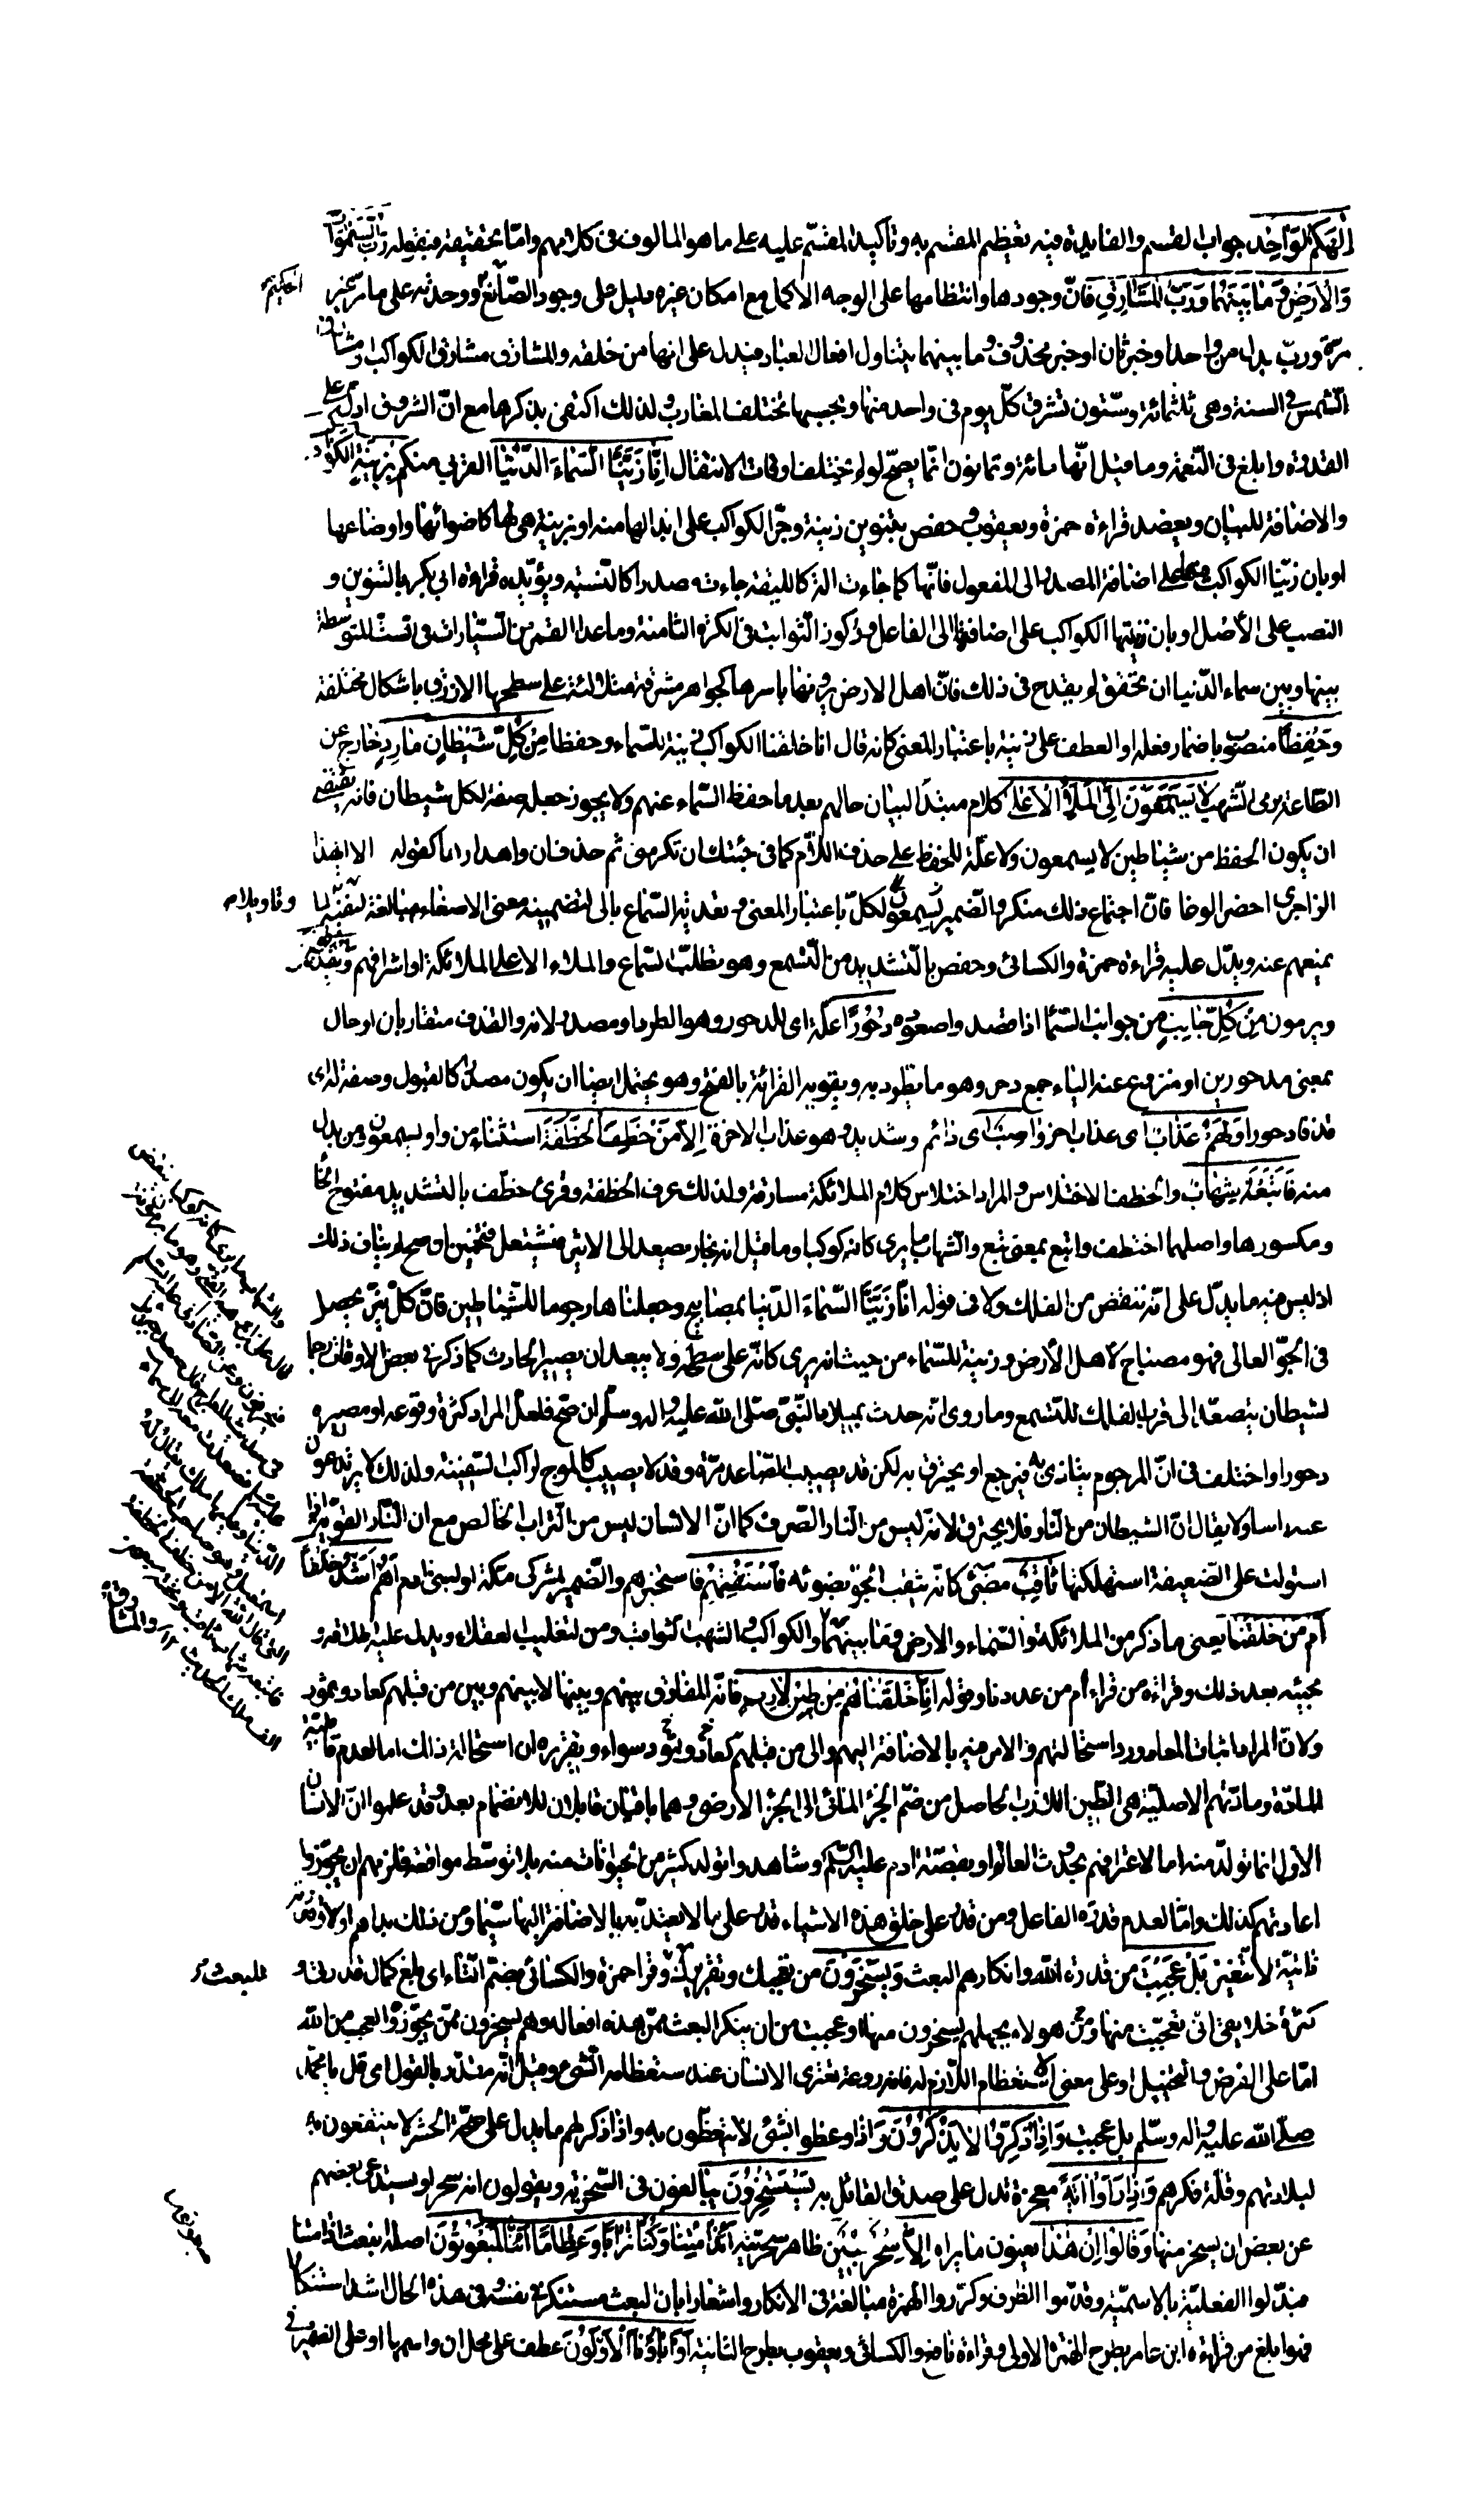 إلهكم لواحد جواب القسم والفايدة فيه تعظيم المقسم به وتأكيد المقسم عليه على ما هو المالوف فى كلامهم وامّا تحقيقه فبقوله ربّ السّموات
والأرض وما بينهما وربّ المشارق فانّ وجودها وانتظامها على الوجه الاكمل مع امكان غيره دليل على وجود الصّانع ووحدته على ما مرّ غير
مرّة وربّ بدل من واحد او خبر ثان او خبر محذوف وما بينهما يتناول افعال العباد فيدل على انها من خلقه والمشارق مشارق الكواكب او مشارق
الشّمس فى السنة وهى ثلثمائة وستّون تشرق كلّ يوم فى واحد منها وبحسبها تختلف المغارب ولذلك اكتفى بذكرها مع انّ الشروق ادلّ على
القدرة وابلغ فى النّعمة وما قيل انّها مائة وثمانون انّما يصحّ لو لم تختلف اوقات الانتقال إنّا زيّنّا السّماء الدّنيا القربى منكم بزينة الكواكب
والاضافة للبيان ويعضد قراءة حمزة ويعقوب وحفص بتنوين زينة وجرّ الكواكب على ابدالها منه او بزينة هى لها كاضوائها واوضاعها
او بان زيّنّا الكواكب فيها على اضافة المصدر الى المفعول فانّها كما جاءت اسما كالليقة جاءت مصدرا كالنّسبة ويؤيّده قراءة ابى بكر بالتنوين و
النصب على الأصل او بان زيّنتها الكواكب على اضافته الى الفاعل وركوز الثّوابت فى الكرة الثامنة وما عدا القمر من السّيّارات فى الستّ المتوسّطة
بينها وبين سماء الدّنيا ان تحقق لم يقدح فى ذلك فانّ اهل الارض يرونها باسرها كجواهر مشرقة متلالئة على سطحها الازرق باشكال مختلفة
وحفظًا منصوب باضمار فعله او العطف على زينة باعتبار المعنى كانه قال انا خلقنا الكواكب زينة للسّماء وحفظا من كلّ شيطان مارد خارج عن
الطّاعة برمى الشّهب لا يسّمّعون إلى الملأ الأعلى كلام مبتدأ لبيان حالهم بعد ما حفظ السّماء عنهم ولا يجوز جعله صفة لكل شيطان فانه يقتضى
ان يكون الحفظ من شياطين لا يسمعون ولا علّة للحفظ على حذف اللاّم كما فى جئتك ان تكرمنى ثم حذف ان واهدارها كقوله الا ايهذا
الزاجرى احضر الوغا فانّ اجتماع ذلك منكر والضّمير يسمعون لكلّ باعتبار المعنى وتعدية السّماع بالى لتضمينه معنى الاصغاء مبالغة لنفيه لما
يمنعهم عنه ويدلّ عليه قراءة حمزة والكسائى وحفص بالتشديد من التّسمع وهو تطلب السّماع والملاء الاعلى الملائكة او اشرافهم ويقذفون
ويرمون من كلّ جانب من جوانب السّماء اذا قصدوا صعوده دحورًا علّة اى للدحور وهو الطرد او مصدر لانه والقذف متقاربان او حال
بمعنى مدحورين او منزوع عنه الباء جمع دحر وهو ما يطرد به ويقويه القرائة بالفتح وهو يحتمل ايضا ان يكون مصدرا كالقبول وصفة له اى
قذفا دحورا ولهم عذاب اى عذاب اخر واصب اى دائم او شديد وهو عذاب الاخرة إلاّ من خطف الخطفة استثناء من واو يسمعون ومن بدل
منه فأتبعه شهاب والخطف الاختلاس والمراد اختلاس كلام الملائكة مسارقة ولذلك عرف الخطفة وقرئ خطّف بالتشديد مفتوح الخاء
ومكسورها واصلهما اختطف واتبع بمعنى تبع والشّهاب ما يرى كانه كوكبا وما قيل انه بخار يصعد الى الاثير فيشتعل فتخمين ان صحّ لم يناف ذلك
اذ ليس فيه ما يدّل على انّه ينقض من الفلك ولا فى قوله انّا زيّنّا السّماء الدّنيا بمصابيح وجعلناها رجوما للشّياطين فانّ كلّ نيّر يحصل
فى الجوّ العالى فهو مصباح لاهل الأرض وزينة للسّماء من حيث انه يرى كانّه على سطحه ولا يبعد ان يصير الحادث كما ذكر فى بعض الاوقات رجما
لشيطان يتصعّد الى قرب الفلك للتّسمع وما روى انّه حدث بميلاد النّبىّ صلّى الله عليه واله وسلّم ان صحّ فلعلّ المراد كثرة وقوعه او مصيره
دحورا واختلف فى انّ المرجوم يتاذى به فيرجع او يحترق به لكن قد يصيب الصّاعد مرّة وقد لا يصيب كالموج لراكب السّفينة ولذلك لا يرتدعون
عنه راسا ولا يقال انّ الشيطان من النّار فلا يحترق لانّه ليس من النار الصّرف كما انّ الانسان ليس من التراب الخالص مع ان النّار القويّة اذا
استولت على الضّعيفة استهلكتها ثاقب مضئ كانّه يثقب الجوّ بضوئه فاستفتهم فاستخبرهم والضّمير لمشركى مكّة او لبنى ادم أهم أشدّ خلقًا
أم من خلقنا يعنى ما ذكر من الملائكة والسّماء والارض وما بينهما والكواكب والشهب الثواقب ومن لتغليب العقلاء ويدل عليه اطلاقه و
مجيئه بعد ذلك وقراءة من قرأ أم من عددنا وقوله إنّا خلقناهم من طين لازب فانّه الفارق بينهم وبينها لا بينهم وبين من قبلهم كعاد وثمود
ولانّ المراد اثبات المعاد ورد استحالتهم والامر فيه بالاضافة اليهم والى من قبلهم كعاد وثمود سواء وتقريره ان استحالة ذلك اما لعدم قابليّة
المادّة ومادّتهم الاصليّة هى الطّين اللازب الحاصل من ضمّ الجزء المائى الى الجزء الأرضى وهما باقيان قابلان للانضمام بعد وقد علموا انّ الانسان
الاول انما تولّد منه اما لاعترافهم بحدوث العالم او بقصّة ادم عليه السّلم وشاهدوا تولد كثير من الحيوانات منه بلا توسّط مواقعة فلزمهم ان يجوّزوا
اعادتهم كذلك وامّا لعدم قدرة الفاعل ومن قدر على خلق هذه الاشياء قدر على ما لا يعتدّ به بالاضافة اليها سيّما ومن ذلك بداهم اولا وقدرته
ذاتيّة لا تتغيّر بل عجبت من قدرة الله وانكارهم البعث ويسخرون من تعجبك وتقريرك وقرا حمزة والكسائى بضمّ التّاء اى بلغ كمال قدرتى و
كثرة خلايقى انّى تعجّبت منها وهؤلاء بجهلهم يسخرون منها او عجبت من ان ينكر البعث ممّن هذه افعاله وهم يسخرون ممّن يجوّزه والعجب من الله
امّا على الفرض والتخييل او على معنى الاستعظام اللاّزم له فانه روعة تعترى الانسان عند استعظامه الشّئ وقيل انّه مقدّر بالقول اى قل يا محمّد
صلّى الله عليه واله وسلّم بل عجبت وإذا ذكّروا لا يذكرون واذا وعظوا بشئ لا يتعظّون به واذا ذكر لهم ما يدل على صحّة الحشر لا ينتفعون به
لبلادتهم وقلّة فكرهم وإذا رأوا آيةً معجزة تدل على صدق القائل به يستسخرون يبالغون فى السّخرية ويقولون انه سحر او يستدعى بعضهم
عن بعض ان يسخر منها وقالوا إن هذا يعنون ما يراه إلاّ سحر مبين ظاهر سحريّته أئذا متنا وكنّا ترابًا وعظامًا أئنّا لمبعوثون اصله انبعث اذا متنا
فبدّلوا الفعليّة بالاسميّة وقدّموا الظرف وكرّروا الهمزة مبالغة فى الانكار واشعارا بان البعث مستنكر فى نفسه وفى هذه الحال اشد استنكارا
فهو ابلغ من قراءة ابن عامر بطرح الهمزة الاولى وقراءة نافع والكسائى ويعقوب بطرح الثانية أو آباؤنا الأوّلون عطف على محل ان واسمها او على الضمير فى
مبعوثون
للبعث